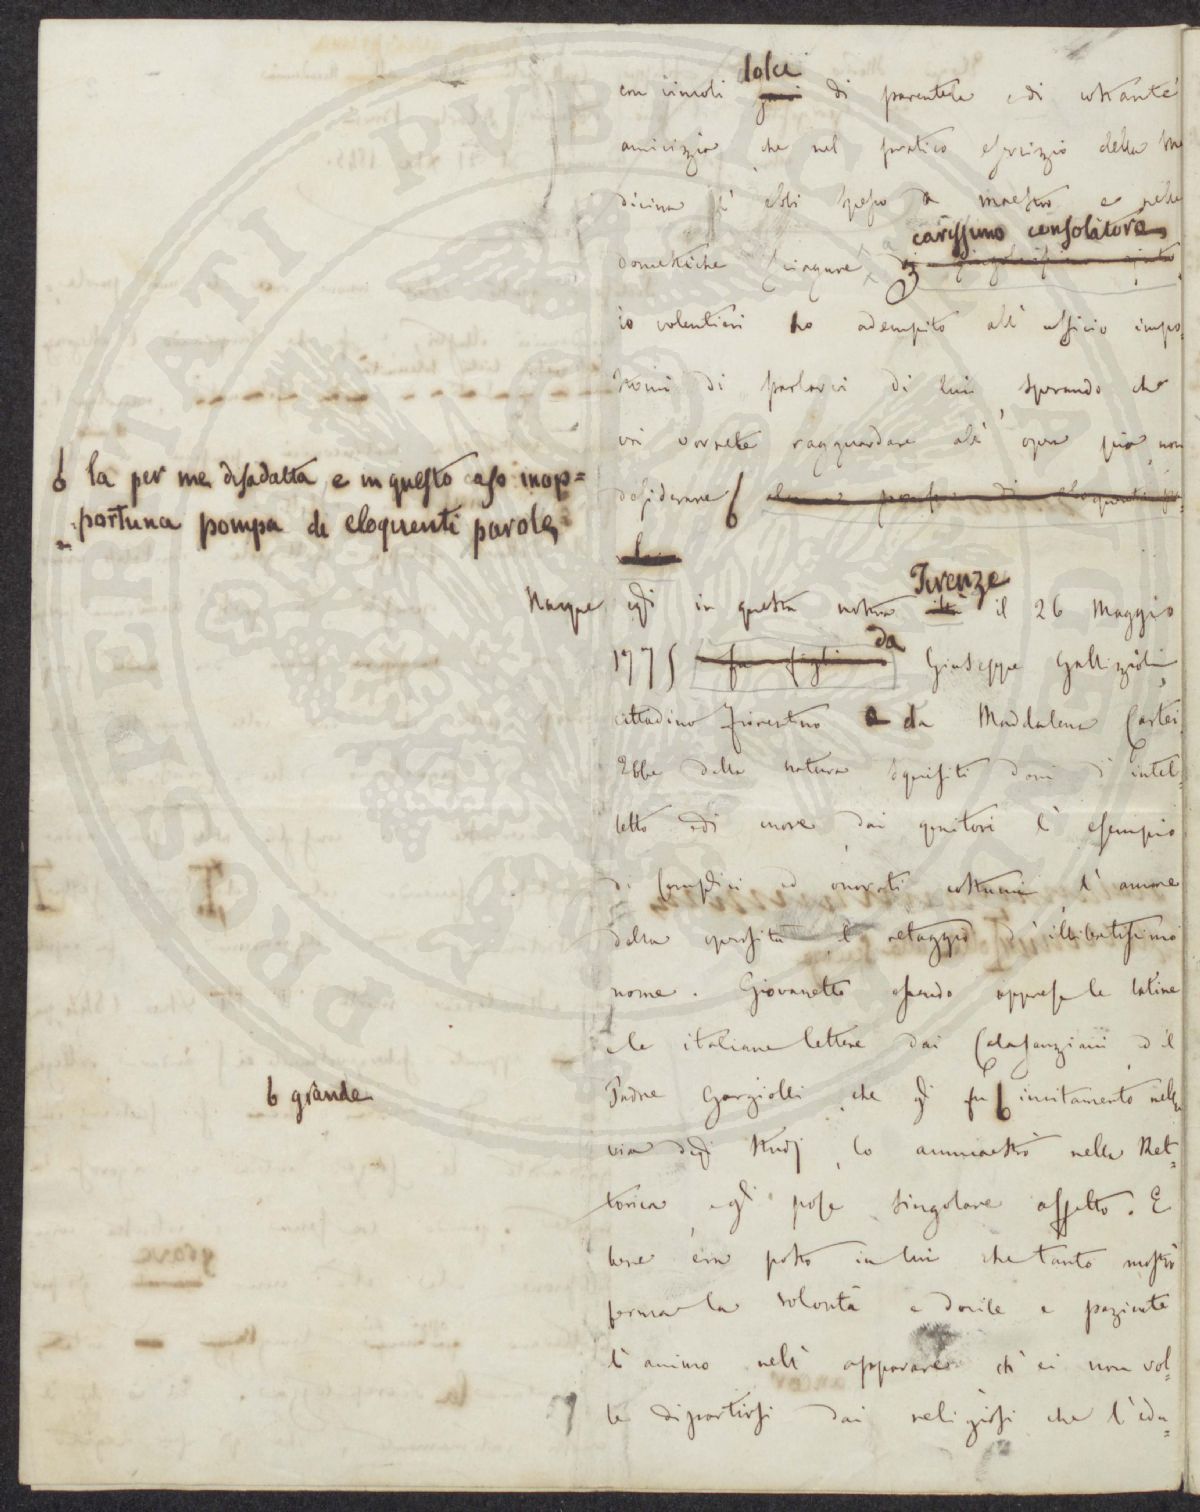 dolci
con vincoli di parentela e di costante
amicizia, che nel pratico esercizio della me
dicina l'ebbi spesso a maestro e nelle
carissimo consolatore,
domestiche sciagure
io volentieri ho adempito all'ufficio impo=
stomi di parlarvi di lui, sperando che
voi vorrete ragguardare all'opera pia, non
desiderare
la per me disadatta e in questo caso inop=
=portuna pompa di eloquenti parole,
Firenze
Nacque egli in questa nostra il 26 Maggio
da
1775 Giuseppe Gallizioli,
cittadino Fiorentino e da Maddalena Cartei.
Ebbe dalla natura squisiti doni d'intel=
letto e di cuore, dai genitori l'esempio
di semplici ed onorati costumi, l'amore
della operosità, il retaggio d'illibatissimo
nome. Giovanetto essendo apprese le latine
e le italiane lettere dai Calasanziani, ed il
Padre Gargiolli, che gli fu incitamento nella
grande
via degli studj, lo ammaestrò nella Ret=
torica, e gli pose singolare affetto. E
bene era posto in lui che tanto mostrò
ferma la volontà e docile e paziente
l'animo nell'apparare ch'ei non vol=
le dipartirsi dai religiosi che l'edu=